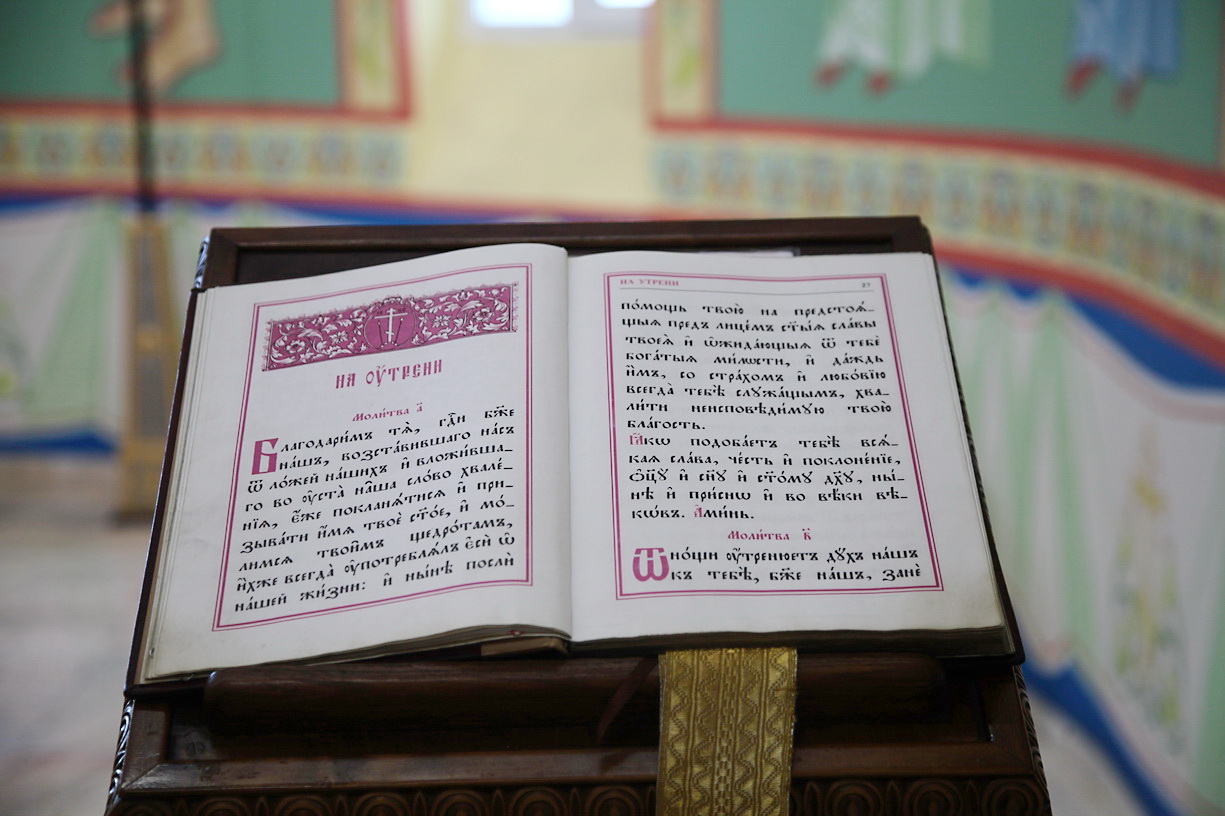 НА ОУ҆́ТРЕНИ
Моли́тва а҃
Благодари́мъ тѧ̀, гдⷭ҇и бж҃е
на́шъ, возста́вившаго на́съ
ѿ ло́жей на́шихъ и҆ вложи́вша_
го во ѹ҆ста̀ на̑ша сло́во хвале́_
нїѧ, є҆́же покланѧ́тисѧ и҆ при_
зыва́ти и҆́мѧ твоѐ ст҃о́е, и҆ мо́_
лимсѧ твои̑мъ щедро́тамъ,
и҆́хже всегда̀ ѹ҆потреблѧ́лъ є҆сѝ ѡ҆
на́шей жи́зни: и҆ ны́нѣ послѝ
НА УТРЕНИ 27
по́мощь твою̀ на предстоѧ́_
щыѧ предъ лице́мъ ст҃ы́ѧ сла́вы
твоеѧ̀ и҆ ѡ҆жида́ющыѧ ѿ тебє̀
бога́тыѧ ми́лѡсти, и҆ да́ждь
и҆̀мъ, со стра́хомъ и҆ любо́вїю
всегда̀ тебѣ̀ слѹжа́щымъ, хва_
ли́ти неисповѣди́мѹю твою̀
бла́гость.
Ꙗ҆́кѡ подоба́етъ тебѣ̀ всѧ́_
каѧ сла́ва, че́сть и҆ поклоне́нїе,
ѻ҆ц҃ѹ̀ и҆ сн҃ѹ и҆ ст҃о́мѹ дх҃ѹ, ны́_
нѣ и҆ при́снѡ и҆ во вѣ́ки вѣ_
кѡ́въ. А҆ми́нь.
Моли́тва в҃
Ѿ но́щи ѹ҆́тренюетъ дѹ́хъ на́шъ
къ тебѣ̀, бж҃е на́шъ, занѐ